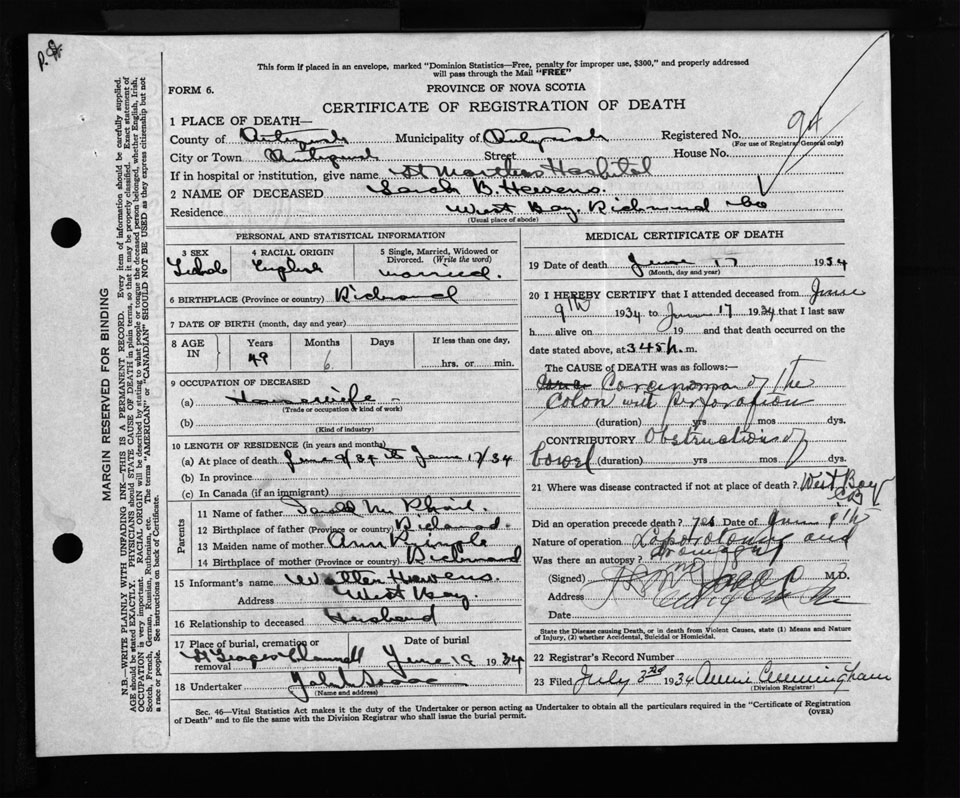 This form if placed in an envelope, marked "Dominion Statistics—Free, penalty for improper use, $300," and properly addressed
will pass through the Mail "FREE"
FORM 6.
PROVINCE OF NOVA SCOTIA
CERTIFICATE OF REGISTRATION OF DEATH
1 PLACE OF DEATH—
County of Antigonish Municipality of Antigonish Registered No. 94
(For use of Registrar General only)
City or Town Antigonish Street House No.
If in hospital or institution, give name St Marthas Hospital
2 NAME OF DECEASED Sarah B. Hawens.
Residence West Bay Richmond Co
(Usual place of abode)
PERSONAL AND STATISTICAL INFORMATION
3 SEX 4 RACIAL ORIGIN 5 Single, Married, Widowed or
Divorced. (Write the word)
English married.
6 BIRTHPLACE (Province or country) Richmond
7 DATE OF BIRTH (month, day and year)
8 AGE IN Years Months Days If less than one day,
49 6 hrs. or min.
9 OCCUPATION OF DECEASED
(a) Housewife
(Trade or occupation or kind of work)
(b)
(Kind of industry)
10 LENGTH OF RESIDENCE (in years and months)
(a) At place of death June 9/34 to June 17/34
(b) In province
(c) In Canada (if an immigrant)
Parents
11 Name of father
12 Birthplace of father (Province or country) Richmond.
13 Maiden name of mother Ann Pringle
14 Birthplace of mother (Province or country) Richmond
15 Informant's name Walter Hawens.
Address West Bay.
16 Relationship to deceased Husband
17 Place of burial, cremation or removal Date of burial
St Georges Channel June 19 1934
18 Undertaker John Isaac
(Name and address)
MEDICAL CERTIFICATE OF DEATH
19 Date of death June 17 1934
(Month, day and year)
20 I HEREBY CERTIFY that I attended deceased from June
9th 1934 to June 17 1934 that I last saw
h alive on 19 and that death occurred on
date stated above, at 345 m.
The CAUSE OF DEATH was as follows:—
Carcinoma of the
Colon with perforation
(duration) yrs mos dys.
CONTRIBUTORY Obstruction of
bowel (duration) yrs mos dys.
21 Where was disease contracted if not at place of death? West Bay
CB
Did an operation precede death? Yes Date of June 9th
Nature of operation Laparotomy and
drainage
Was there an autopsy? no
(Signed) M.D.
Address Antigonish
Date
State the Disease causing Death, or in death from Violent Causes, state (1) Means and Nature
of Injury, (2) whether Accidental, Suicidal or Homicidal.
22 Registrar's Record Number
23 Filed July 3rd 1934 Annie Cunningham
(Division Registrar)
Sec. 46—Vital Statistics Act makes it the duty of the Undertaker or person acting as Undertaker to obtain all the particulars required in the "Certificate of Registration
of Death" and to file the same with the Division Registrar who shall issue the burial permit.
(OVER)
MARGIN RESERVED FOR BINDING
N.B.—WRITE PLAINLY WITH UNFADING INK—THIS IS A PERMANENT RECORD. Every item of information should be carefully supplied.
AGE should be stated EXACTLY. PHYSICIANS should STATE CAUSE OF DEATH in plain terms, so that it may be properly classified. Exact statement of
OCCUPATION is very important. RACIAL ORIGIN will be described by stating to what people or tongue the deceased person belonged, whether English, Irish,
Scotch, French, German, Russian, Ruthenian, etc. The terms "AMERICAN" or "CANADIAN" SHOULD NOT BE USED as they express citizenship but not
a race or people. See instructions on back of Certificate.